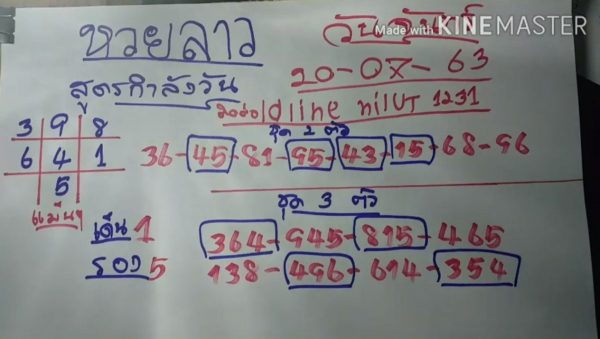 Made with KINEMASTER
หวยลาว
วันจันทร์
20-07-63
สูตรกำลังวัน
ติดต่อ Idline nilUT 1231
ชุด 2 ตัว
3 9 8
6 4 1
5
แม่นๆ
36-45-81-95-43-15-68-96
ชุด 3 ตัว
เด่น 1
364-945-815-465
รอง 5
138-496-614-354